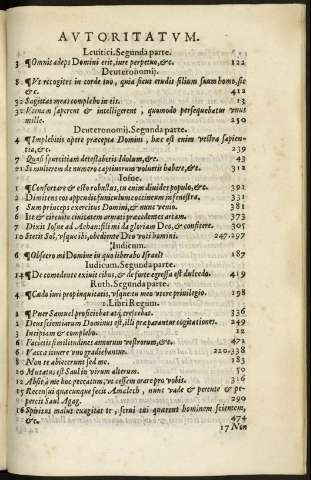 AVTORITATVM.
Leuitici. Segunda parte.
3 ¶Omnis adeps Domini erit, iure perpetuo, &c. 122
Deuteronomij.
8 ¶Vt recogites in corde tuo, quia sicut erudit filium suum homo, sic
&c. 412
32 Sagittas meas complebo in eis. 13
32 Vtinam saperent & intelligerent, quomodo persequebatur vnus
mille. 250
Deuteronomij. Segunda parte.
4 ¶Implebitis opere præcepta Domini, hæc est enim vestra sapien-
tia, &c. 239
7 Quasi spurcitiam detestabeis Idolum, &c. 43
21 Si mulierem de numero captiuorum volueris habere, &c. 312
Iosue.
1 ¶Confortare & esto robustus, tu enim diuides populo, &c. 391
2 Dimitens eos appendit funiculum coccineum in fenestra, 331
5 Sum princeps exercitus Domini, & nunc venio. 381
6 Ite & circuite ciuitatem armati præcedentes arcam. 373
7 Dixit Iosue ad Achan: fili mi da gloriam Deo, & confitere. 305
10 Stetit Sol, vsque ibi, obediente Deo voci hominis. 247.297
Iudicum.
6 ¶Obsecro mi Domine in quo liberabo Israel? 187
Iudicum. Segunda parte.
14 ¶De comedente exiuit cibus, & de forte egressa est dulcedo. 419
Ruth. Segunda parte.
4 ¶Cedo iuri propinquitatis, vsque tu meo vtere priuilegio. 198
1. Libri Regum.
1 ¶Puer Samuel proficiebat atq; crescebat. 336
2 Deus scientiarum Dominus est, illi præparantur cogitationes. 249
3 Incipiam & complebo. 22
6 Facietis similitudines anorum vestrorum, &c. 471
6 Vaccæ itinere vno gradiebantur. 220.338
8 Non te abiecerunt sed me. 183
10 Mutatus est Saul in virum alterum. 50
12 Absit à me hoc peccatum, vt cessem orare pro vobis. 316
15 Recensui quæcunque fecit Amalech, nunc vade & percute & pe-
percit Saul Agag. 290
16 Spiritus malus exagitat te, serui tui quærent hominem scientem,
&c. 474
17 Non